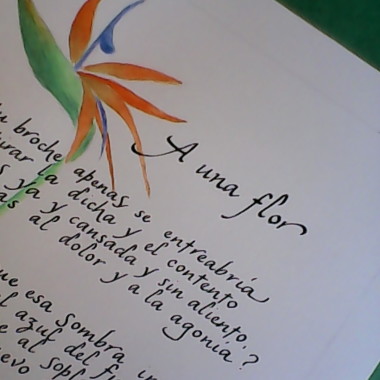 A una flor
tu broche apenas se entreabría
la dicha y el contento
ya y cansada y sin aliento..
al dolor y a la agonía?
que esa sombra
azul del
al